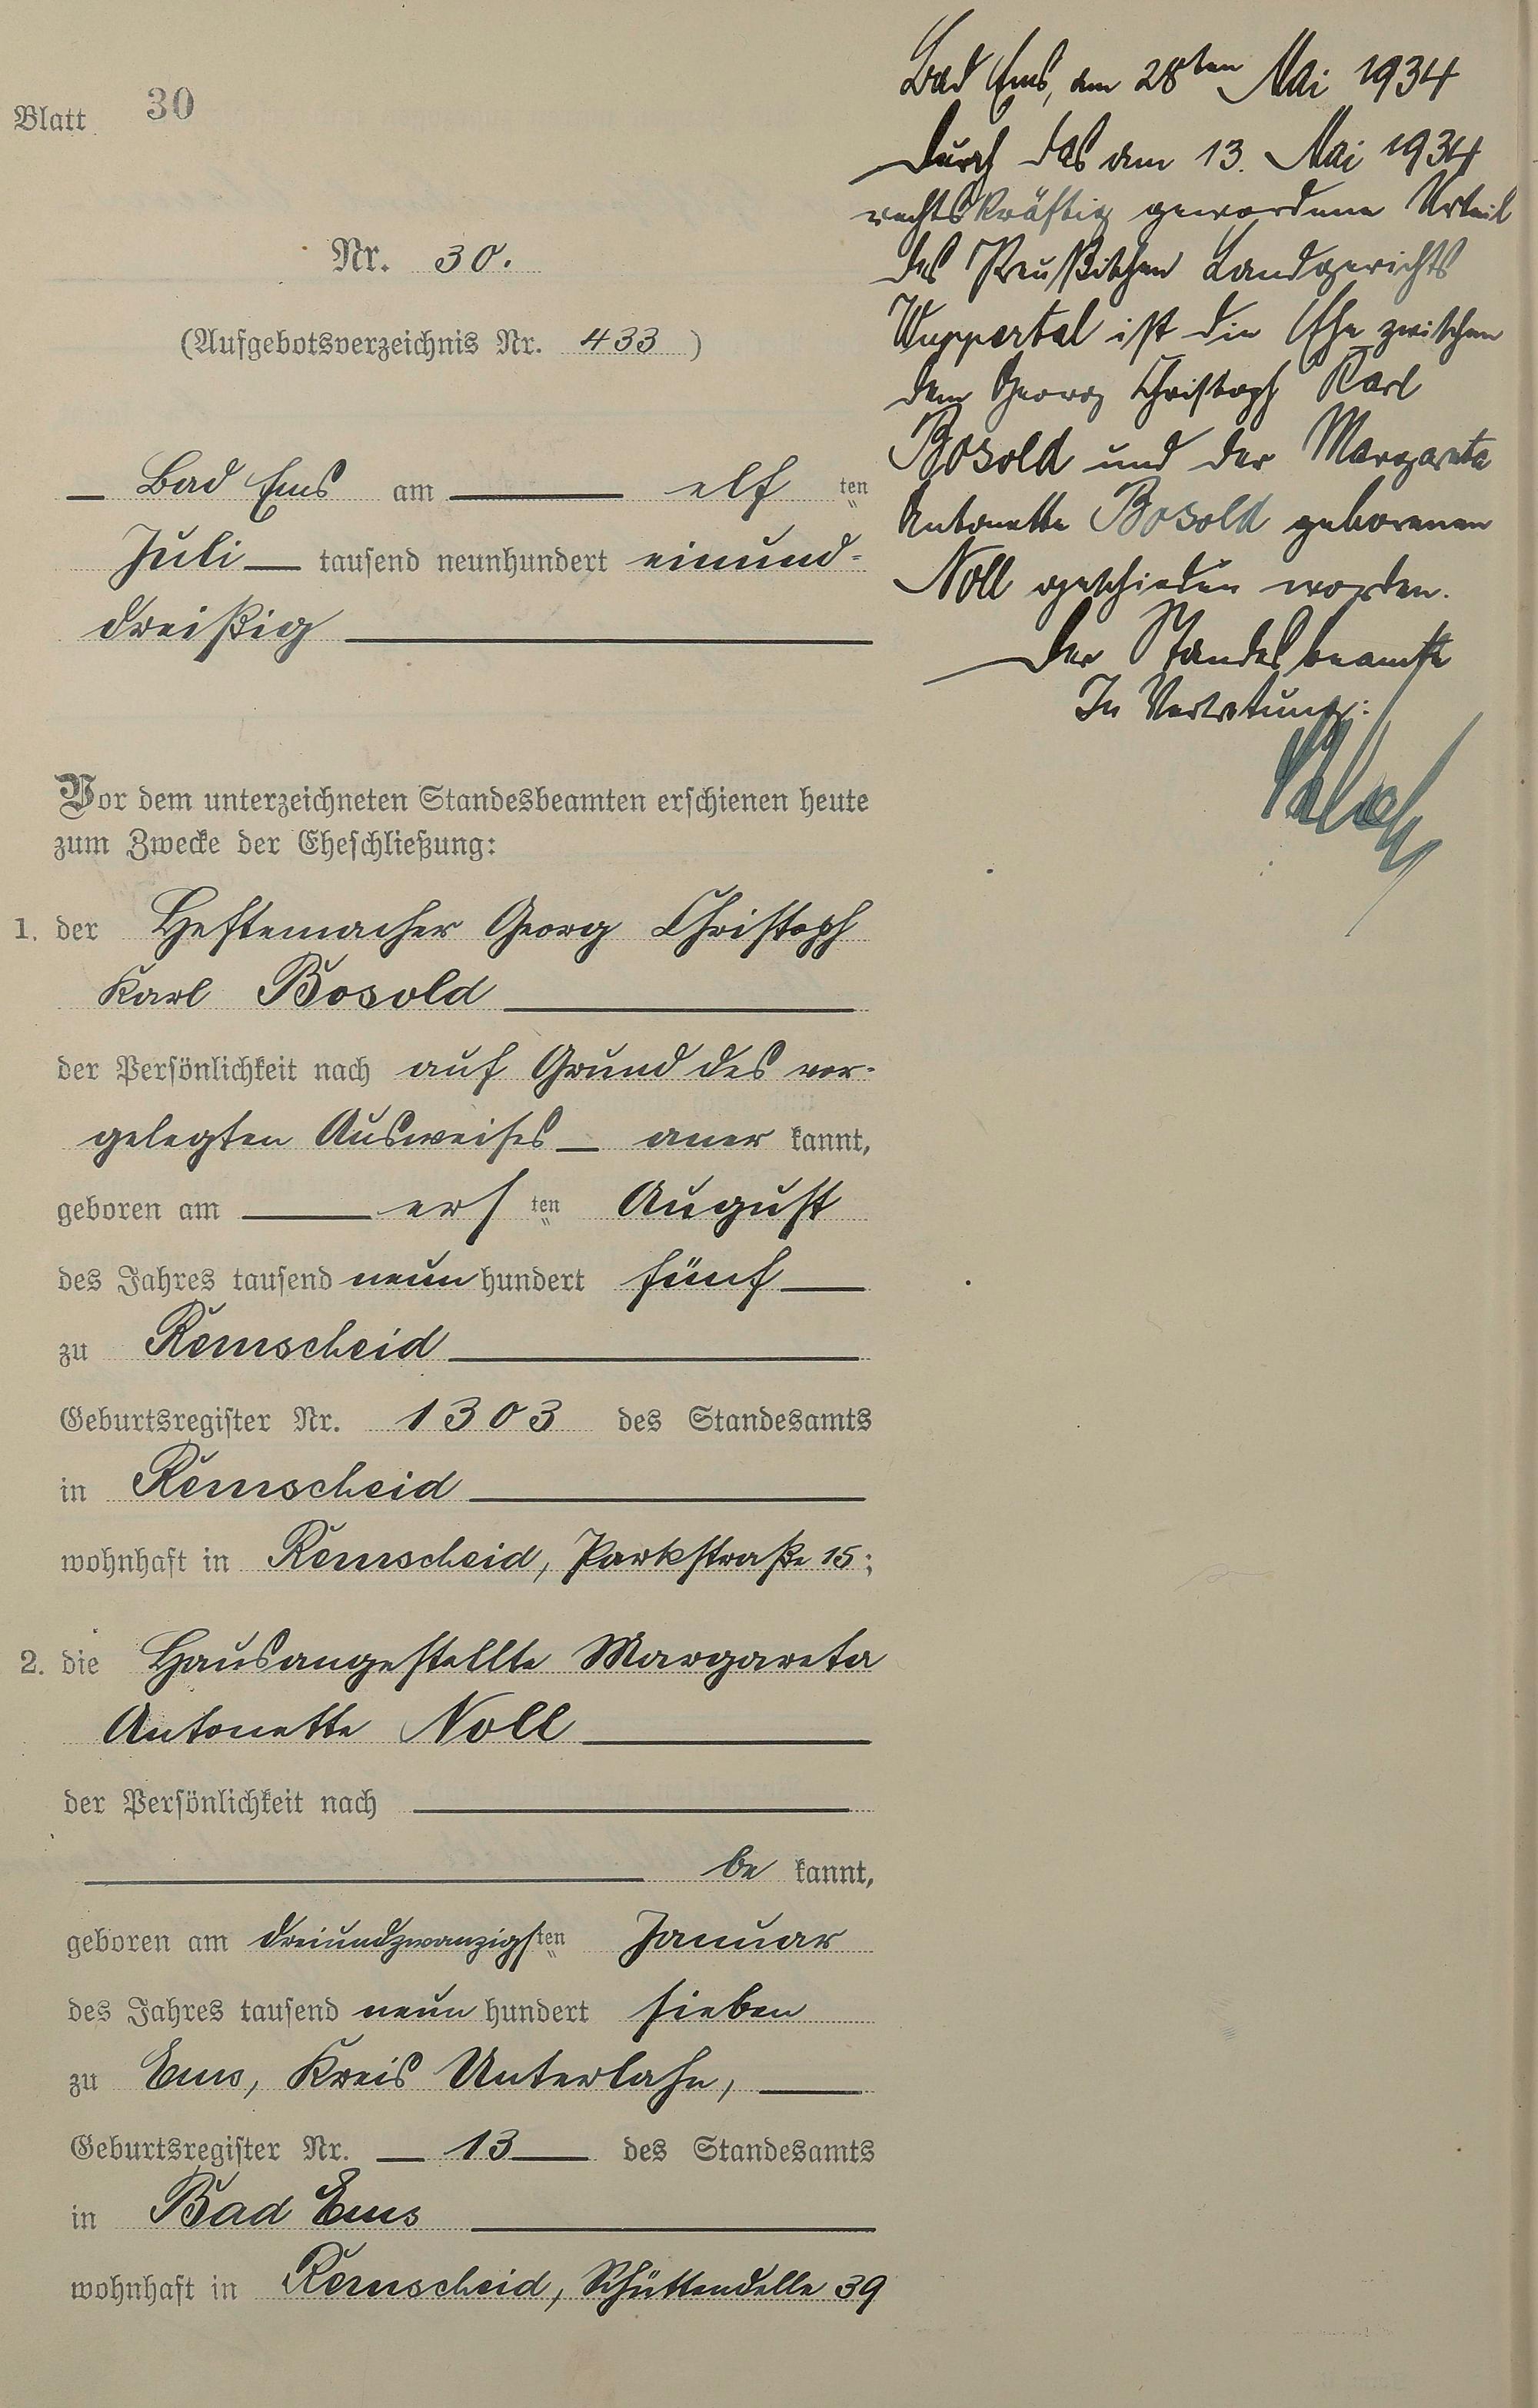 Blatt 30
Nr. 30.
(Aufgebotsverzeichnis Nr. 433)
Bad Ems am elf ten
Juli tausend neunhundert einund-
dreißig
Vor dem unterzeichneten Standesbeamten erschienen heute
zum Zwecke der Eheschließung:
1. der Heftemacher Georg Christoph
Karl Bosold
der Persönlichkeit nach auf Grund des vor-
gelegten Ausweises aner kannt,
geboren am ers ten August
des Jahres tausend neun hundert fünf
zu Remscheid
Geburtsregister Nr. 1303 des Standesamts
in Remscheid
wohnhaft in Remscheid, Parkstraße 15;
2. die Hausangestellte Margareta
Antonette Noll
der Persönlichkeit nach
be kannt,
geboren am dreiundzwanzigsten Januar
des Jahres tausend neun hundert sieben
zu Ems, Kreis Unterlahn,
Geburtsregister Nr. 13 des Standesamts
in Bad Ems
wohnhaft in Remscheid, Schüttendelle 39
Bad Ems, am 28ten Mai 1934
Durch das am 13. Mai 1934
rechtskräftig gewordene Urteil
des Preußischen Landgerichts
Wuppertal ist die Ehe zwischen
dem Georg Christoph Karl
Bosold und der Margareta
Antonette Bosold geborenen
Noll geschieden worden.
Der Standesbeamte
In Vertretung: